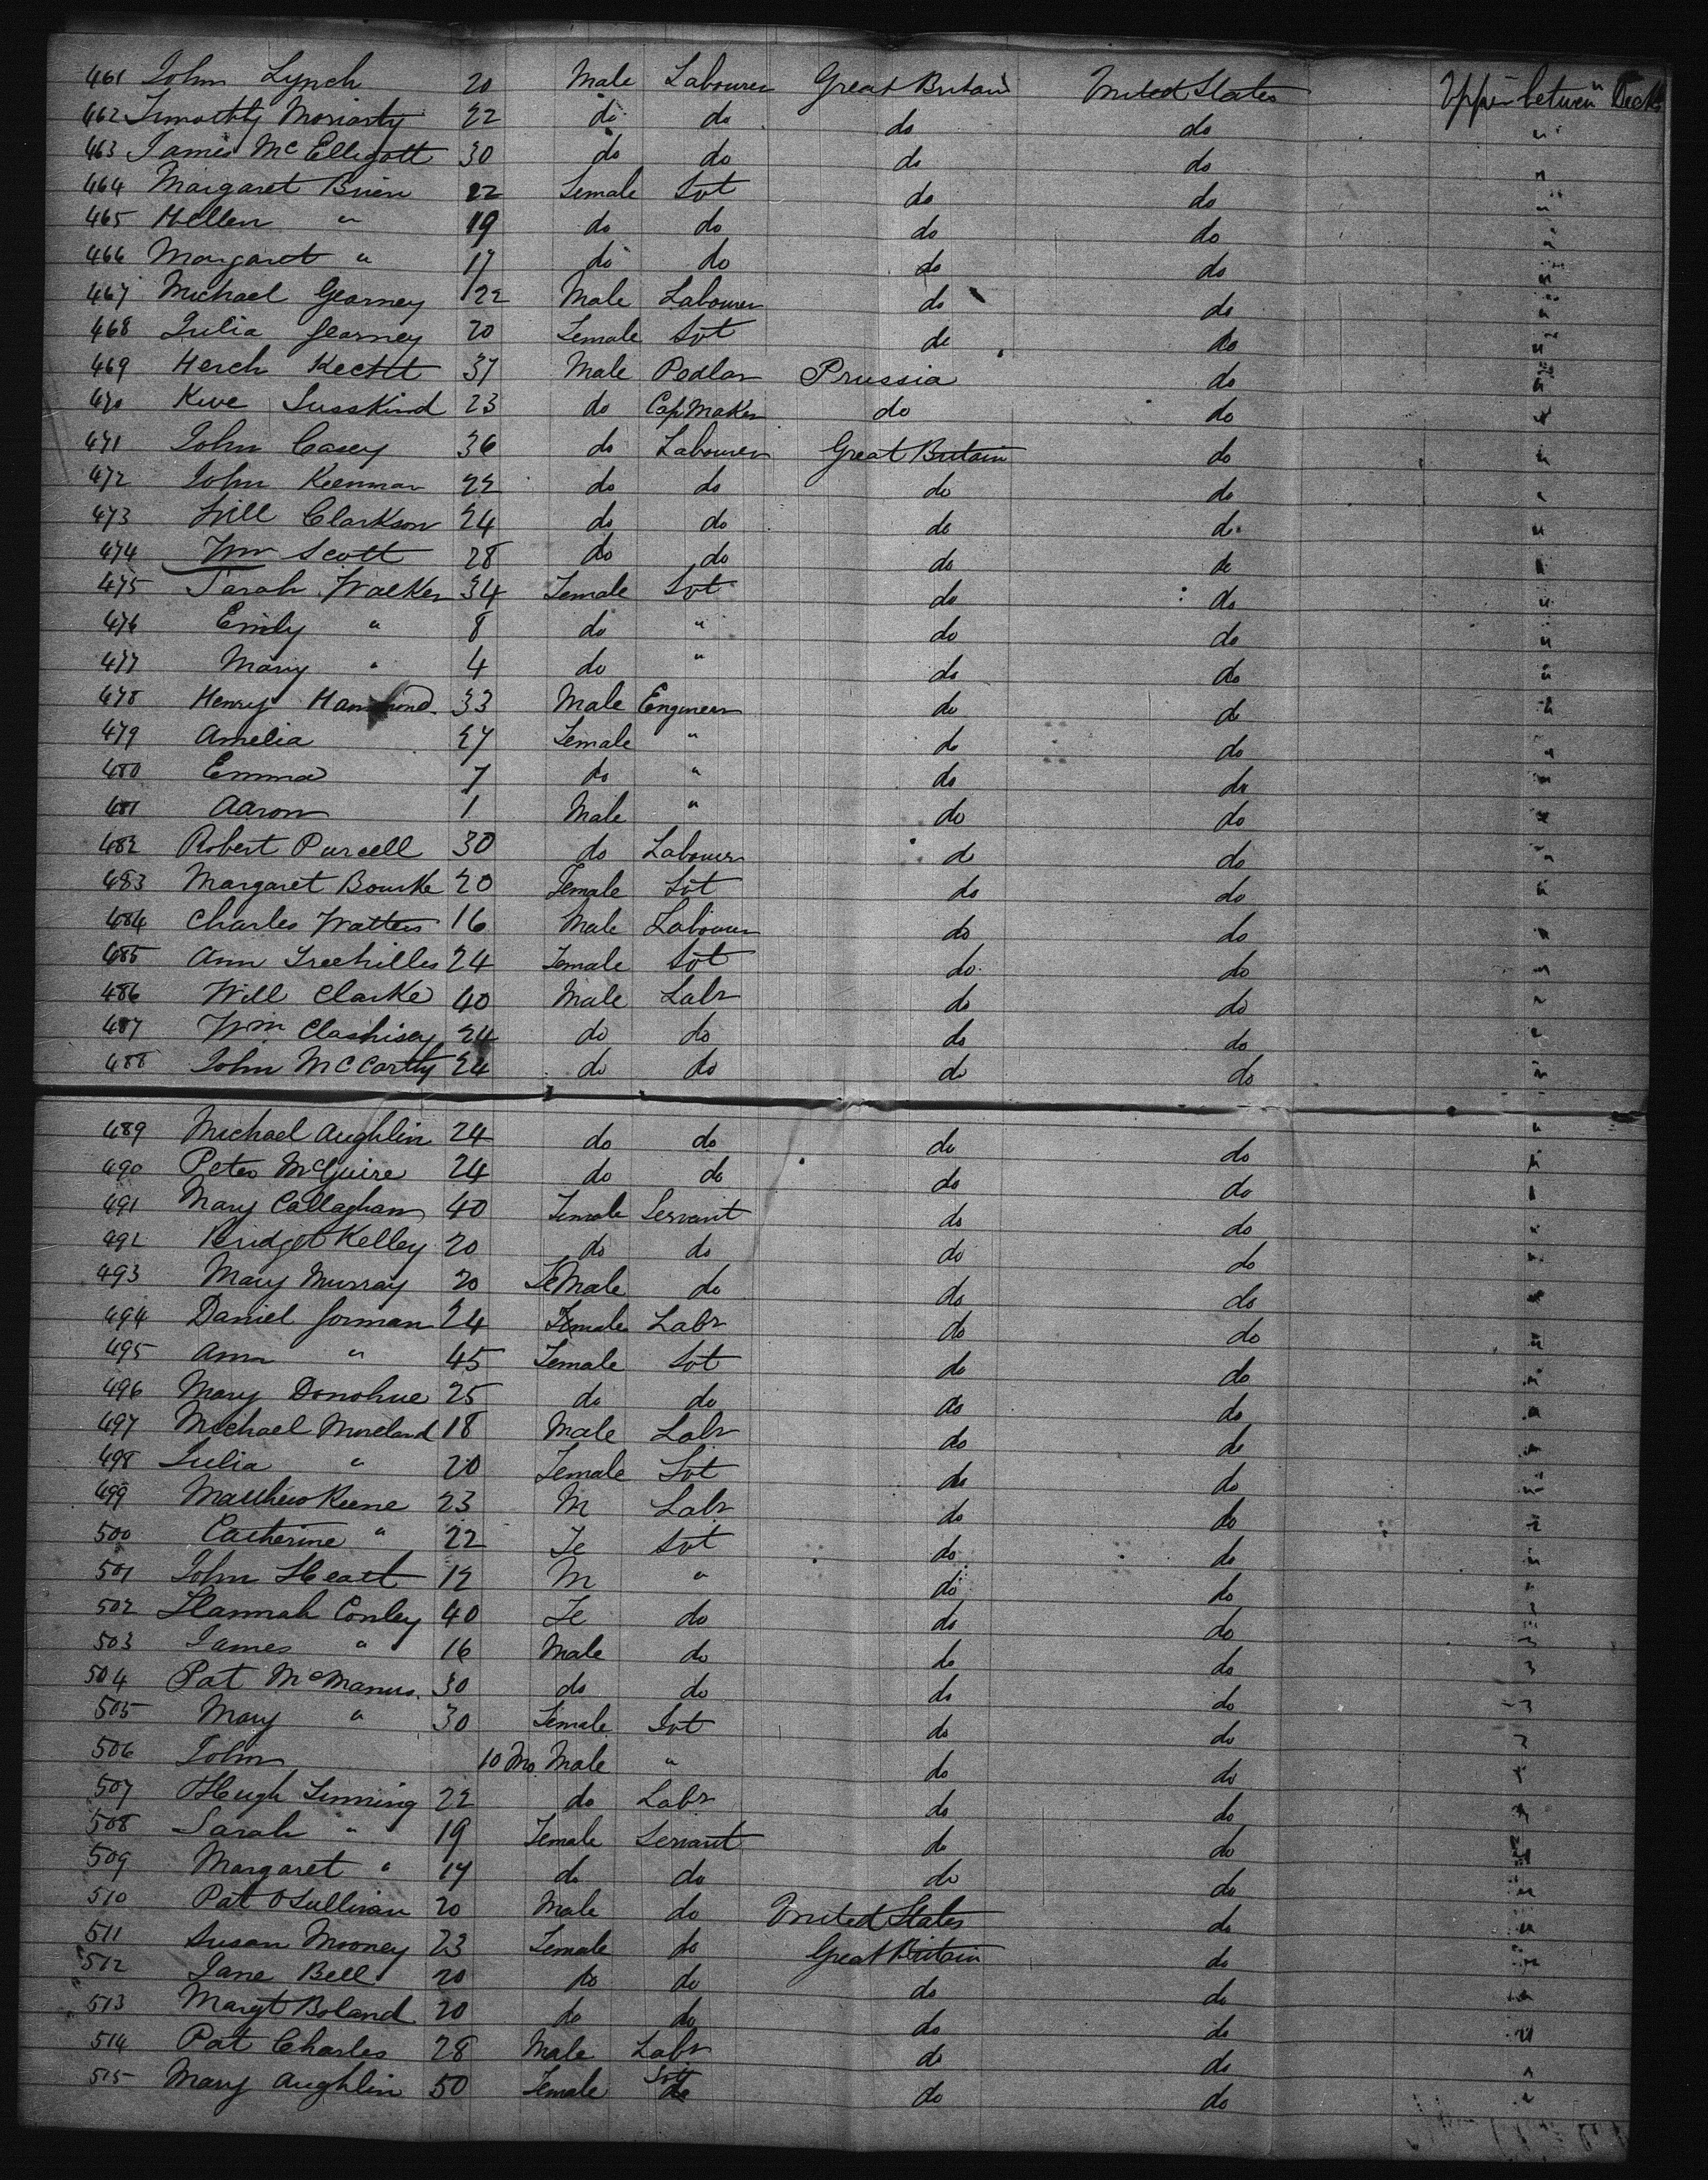 461 John Lynch 20 Male Labourer Great Britain United States Upper between Decks
462 Timothy Moriarty 22 do do do do "
463 James McElligott 30 do do do do "
464 Margaret Brien 22 Female Svt do do "
465 Hellen " 19 do do do do "
466 Margaret " 17 do do do do "
467 Michael Gearney 22 Male Labourer do do "
468 Julia Gearney 20 Female Svt do do "
469 Herch Kechtt 37 Male Pedlar Prussia do "
470 Kive Susskind 23 do Cap Maker do do "
471 John Casey 36 do Labourer Great Britain do "
472 John Keenman 22 do do do do "
473 Will Clarkson 24 do do do do "
474 Wm Scott 28 do do do do "
475 Sarah Walker 34 Female Svt do do "
476 Emily " 8 do " do do "
477 Mary " 4 do " do do "
478 Henry Hammond 33 Male Engineer do do "
479 Amelia 27 Female " do do "
480 Emma 7 do " do do "
481 Aaron 1 Male " do do "
482 Robert Purcell 30 do Labourer do do "
483 Margaret Bourke 20 Female Svt do do "
484 Charles Watters 16 Male Labourer do do "
485 Ann Treehilles 24 Female Svt do do "
486 Will Clarke 40 Male Labr do do "
487 Wm Clashisey 24 do do do do "
488 John McCarthy 24 do do do do "
489 Michael Aughlin 24 do do do do "
490 Peter McGuire 24 do do do do "
491 Mary Callaghan 40 Female Servant do do "
492 Bridget Kelley 20 do do do do "
493 Mary Murray 20 FeMale do do do "
494 Daniel Gorman 24 Female Labr do do "
495 Ann " 45 Female Svt do do "
496 Mary Donohue 25 do do do do "
497 Michael Moreland 18 Male Labr do do "
498 Julia " 20 Female Svt do do "
499 Matthew Keene 23 M Labr do do "
500 Catherine " 22 Fe Svt do do "
501 John Heatt 12 M " do do "
502 Hannah Conley 40 Fe do do do "
503 James " 16 Male do do do "
504 Pat McManus 30 do do do do "
505 Mary " 30 Female Svt do do "
506 John 10 Mo Male " do do "
507 Hugh Linning 22 do Labr do do "
508 Sarah " 19 Female Servant do do "
509 Margaret " 17 do do do do "
510 Pat OSullivan 20 Male do United States do "
511 Susan Mooney 23 Female do Great Britain do "
512 Jane Bell 20 do do do do "
513 Margt Boland 20 do do do do "
514 Pat Charles 28 Male Labr do do "
515 Mary Aughlin 50 Female Svt do do "